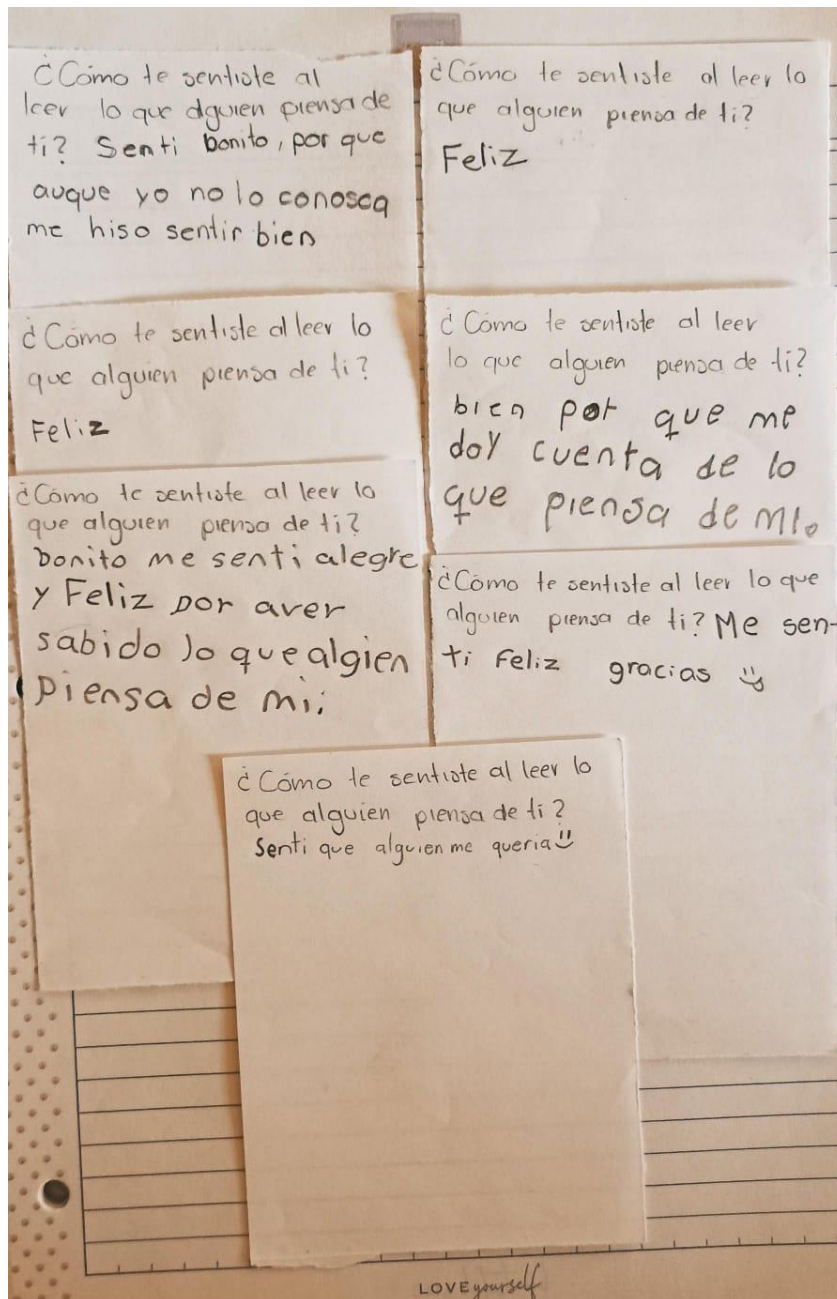 ¿Cómo te sentiste al
leer lo que alguien piensa de
ti? Senti bonito, por que
auque yo no lo conosca
me hiso sentir bien
¿Cómo te sentiste al leer lo
que alguien piensa de ti?
Feliz
¿Cómo te sentiste al leer lo
que alguien piensa de ti?
Feliz
¿Cómo te sentiste al leer
lo que alguien piensa de ti?
bien por que me
doy cuenta de lo
que piensa de mi.
¿Cómo te sentiste al leer lo
que alguien piensa de ti?
bonito me senti alegre
y Feliz por aver
sabido lo que algien
piensa de mi.
¿Cómo te sentiste al leer lo que
alguien piensa de ti? Me sen-
ti Feliz gracias
¿Cómo te sentiste al leer lo
que alguien piensa de ti?
Senti que alguien me queria
LOVE yourself